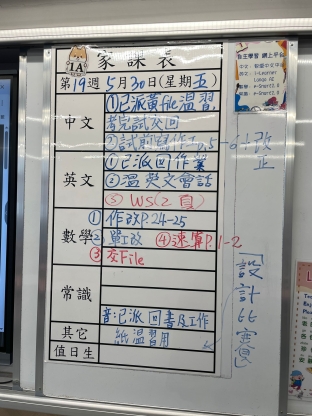 家課表
1A
第19週5月30日(星期五)
中文
①已派黃file温習
考完試交回
②試前寫作T.0.5-6 改正
英文
①已派回作業
②溫英文會話
③ WS(2頁)
數學
① 作改P.24-25
②單工改 ④速算P.1-2
③交File
常識
音:已派回書及工作
其它
紙溫習用
值日生
設計比賽
自主學習 網上平台